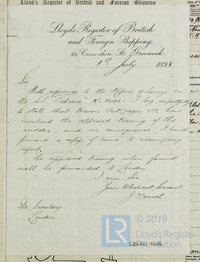 Lloyd's Register of British and Foreign Shipping
Lloyd's Register of British
and
Foreign Shipping,
Greenock
1st July 1898
Sir
With reference to the Report of Survey on
the S.S.
to state that Messrs have
mislaid the approved tracing of the
rudder, and in consequence, I
forward a copy of same to accompany
report.
The approved tracing when found
will be forwarded to London.
I am Sir
Your Obedient Servant
J. French
The Secretary
London
© 2019
Lloyd's Register
Foundation